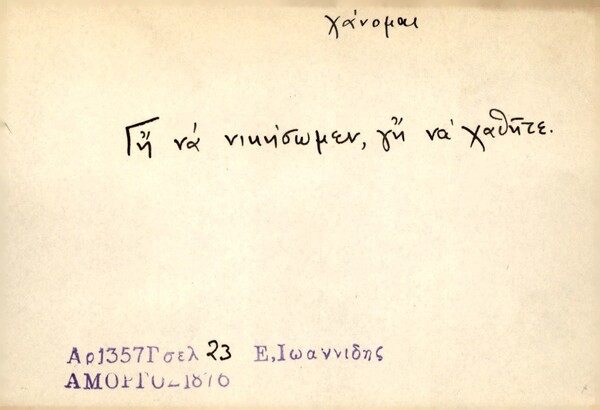 χάνομαι
Γἤ νά νικήσωμεν, γἤ νά χαθῆτε.
Αρ1357Γσελ 23 Ε,Ιωαννιδης
ΑΜΟΡΓΟΣ1876